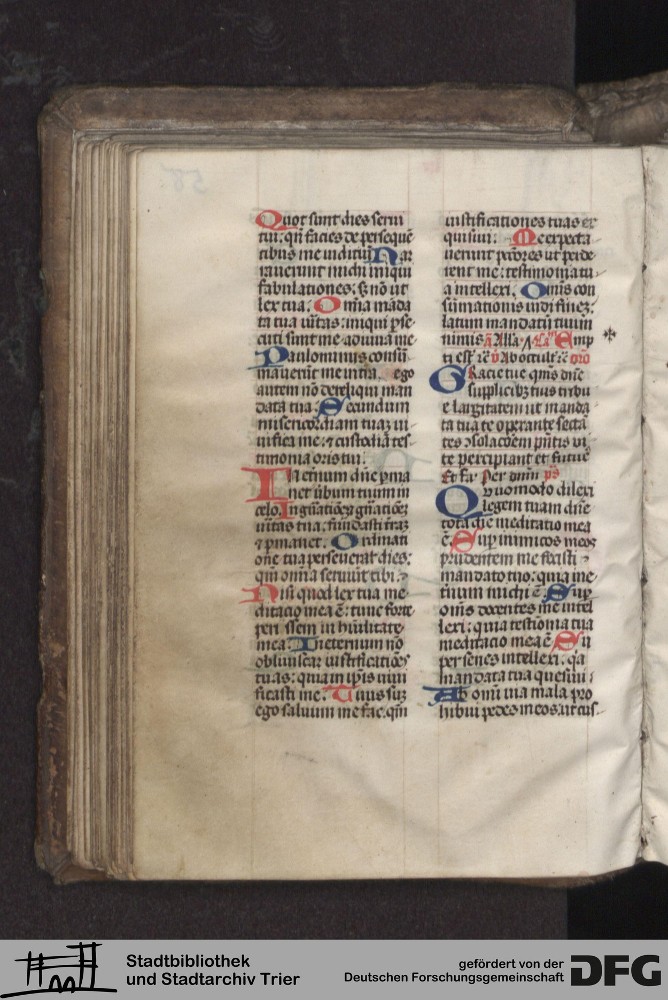 Quot sunt dies serui
tui: qn facies de perseque
tibus me iudiciu Nar
rauerunt michi iniqui
fabulationes: s; no ut
lex tua. Omia mada
ta tua uitas: iniqui pse
cuti sunt me adiuua me
Paulominus consu
mauerut me in tra ego
autem no dereliqui man
data tua. Secundum
misericordiam tuaz ui
uifica me: et custodia tes
timonia oris tui.
In eternum dne pma
net uerbum tuum in
celo. In gnatioez gnatioez
uitas tua: fundasti traz
et pmanet. Ordinati
one tua perseuerat dies:
qm omia seruiut tibi.
Nisi quod lex tua me
ditacio mea e: tunc forte
perissem in huilitate
mea. In eternum no
obliuiscar iustificatioes
tuas: quia in ipis uiui
ficasti me. Tuus suz
ego saluum me fac: qm
iustificationes tuas ex
quisiui. Me expecta
uerunt pctores ut perde
rent me: testimonia tu
a intellexi. Omis con
sumationis uidi finez:
latum mandatu tuum
nimis
Gracie tue qms dne
supplicibz tuis tribu
e largitatem ut manda
ta tua te operante secta
tes psolacoem pntis ui
te percipiant et future
Et fa Per dnm ps
Quomodo dilexi
legem tuam dne
tota die meditatio mea
e. Sup inimicos meos
prudentem me fecisti
mandato tuo: quia ine
ternum michi e. Sup
omis docentes me intel
lexi: quia testionia tua
meditacio mea e Su
per senes intellexi: qa
mandata tua quesiui
Ab omi uia mala pro
hibui pedes meos: ut cus
Stadtbibliothek
und Stadtarchiv Trier
gefördert von der
Deutschen Forschungsgemeinschaft
DFG